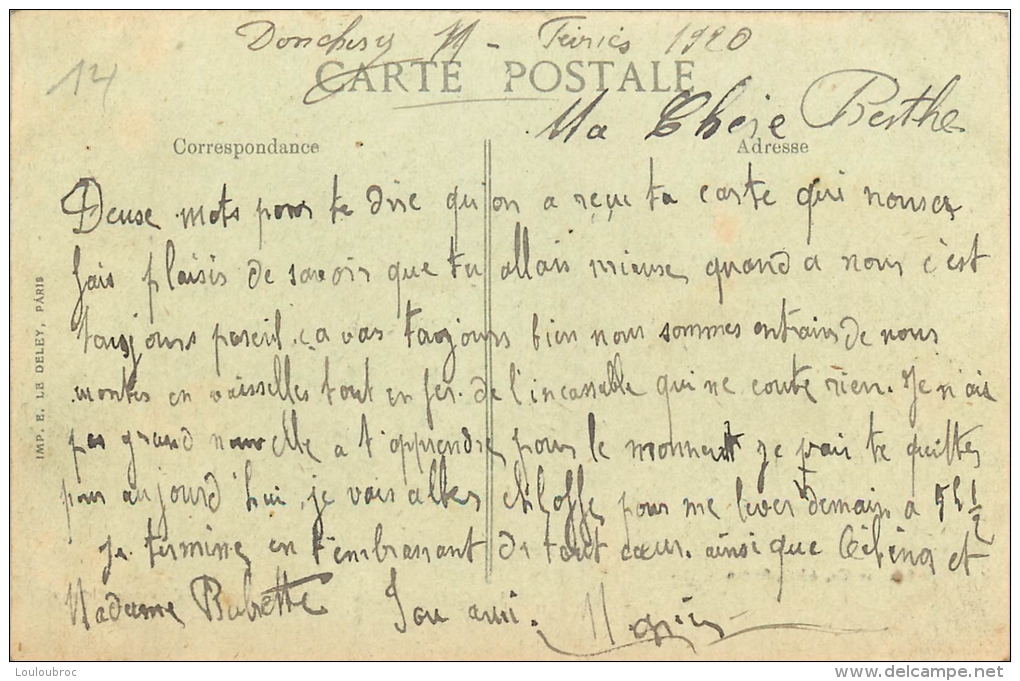 Donchery 11 - Février 1920
14
CARTE POSTALE
Ma Chère Berthe
Correspondance
Adresse
Deuse mots pour te dire qu'on a reçu ta carte qui nous a
fais plaisir de savoir que tu allais mieuse, quand a nous c'est
toujours pareil. ça vas toujours bien nous sommes entrain de nous
monter en vaisselles tout en fer. de l'incassable qui ne coute rien. Je n'ais
pas grand nouvelle a t'apprendre pour le moment je vai te quitter
pour aujourd'hui, je vais aller pour me lever demain a 5h 1/2
Je termine en t'embrassant de tout cœur. ainsi que et
Madame Babette Ton ami.
IMP. E. LE DELEY, PARIS
Louloubroc
www.delcampe.net